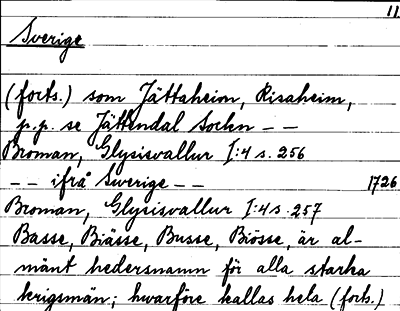 11
Sverige
(forts.) som Jättaheim, Risaheim,
p.p. se Jättendal Sockn - -
Broman, Glysisvallur I:4 s. 256
- - ifrå Swerige - - 1726
Broman, Glysisvallur I:4 s. 257
Basse, Biässe, Busse, Biösse, är al-
mänt hedersnamn för alla starka
krigsmän; hwarföre kallas hela (forts.)